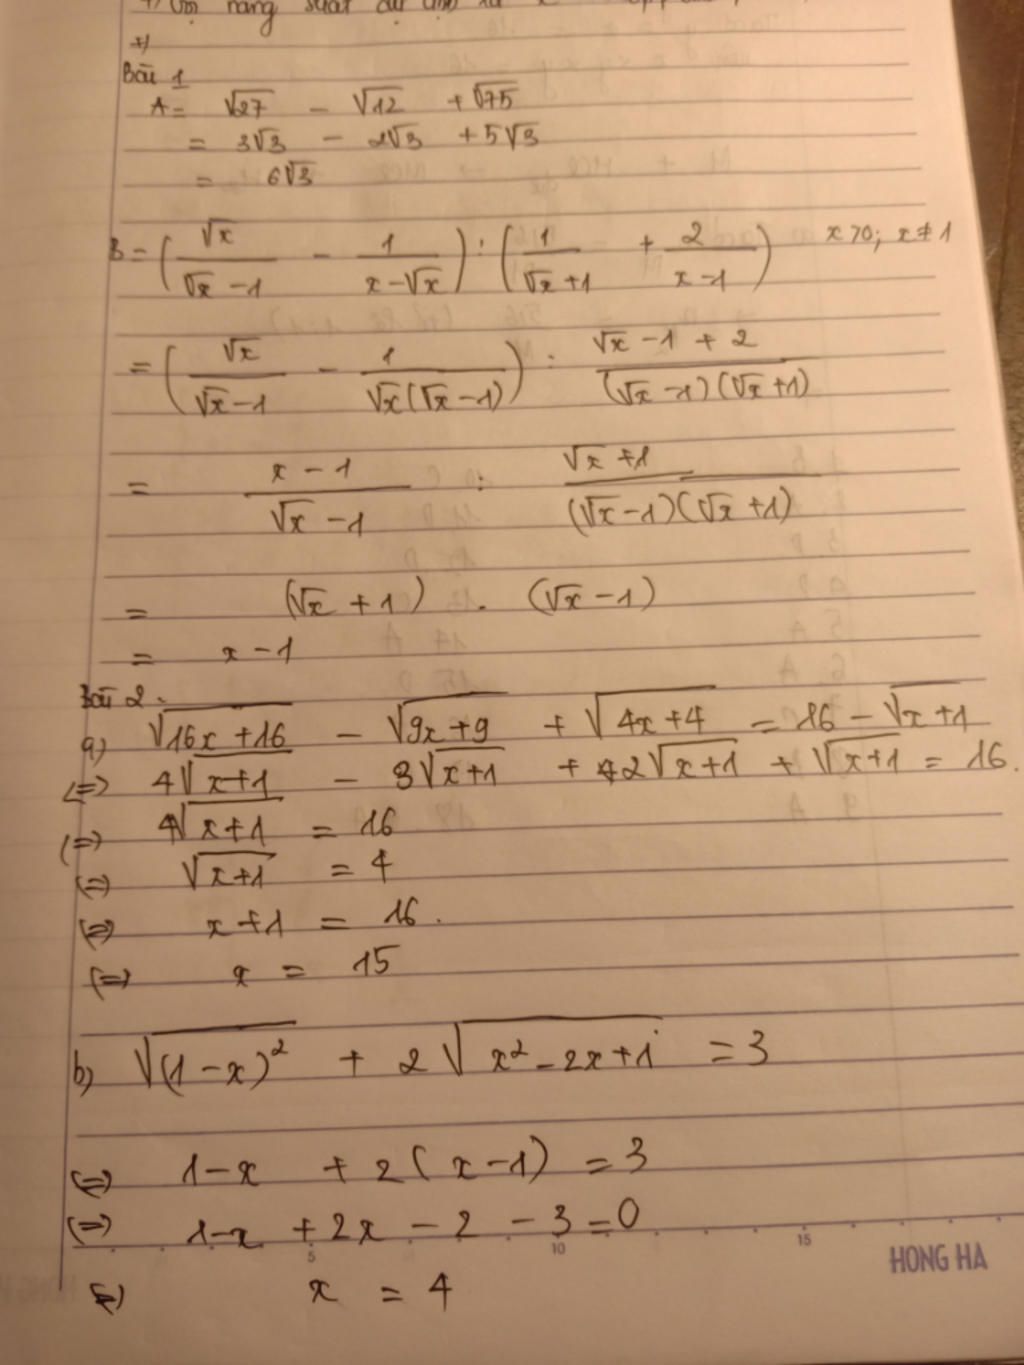 +)
Bài 1
A = √27 - √12 + √75
= 3√3 - 2√3 + 5√3
= 6√3
B = (√x / (√x - 1) - 1 / (x - √x)) : (1 / (√x + 1) + 2 / (x - 1)) x > 0; x ≠ 1
= (√x / (√x - 1) - 1 / (√x(√x - 1))) : (√x - 1 + 2) / ((√x - 1)(√x + 1))
= (x - 1) / (√x - 1) : (√x + 1) / ((√x - 1)(√x + 1))
= (√x + 1) . (√x - 1)
= x - 1
Bài 2.
a) √(16x + 16) - √(9x + 9) + √(4x + 4) = 16 - √(x + 1)
(=) 4√(x + 1) - 3√(x + 1) + 2√(x + 1) + √(x + 1) = 16.
(=) 4√(x + 1) = 16
(=) √(x + 1) = 4
(=) x + 1 = 16.
(=) x = 15
b) √((1 - x)²) + 2√(x² - 2x + 1) = 3
(=) 1 - x + 2(x - 1) = 3
(=) 1 - x + 2x - 2 - 3 = 0
5 10 15
HONG HA
(=) x = 4